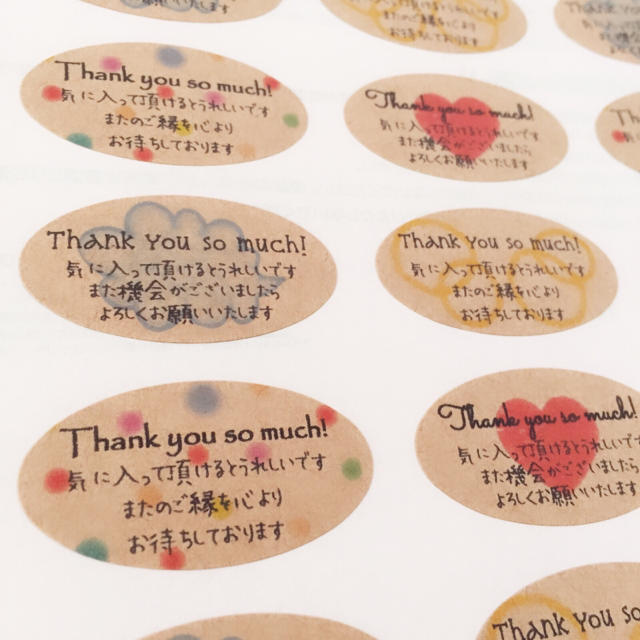 Thank you so much!
気に入って頂けるとうれしいです
またのご縁を心より
お待ちしております
Thank you so much!
気に入って頂けるとうれしいです
また機会がございましたら
よろしくお願いいたします
Thank you so much!
気に入って頂けるとうれしいです
また機会がございましたら
よろしくお願いいたします
Thank you so much!
気に入って頂けるとうれしいです
またのご縁を心より
お待ちしております
Thank you so much!
気に入って頂けるとうれしいです
またのご縁を心より
お待ちしております
Thank you so much!
気に入って頂けるとうれしいです
また機会がございましたら
よろしくお願いいたします
Thank you so